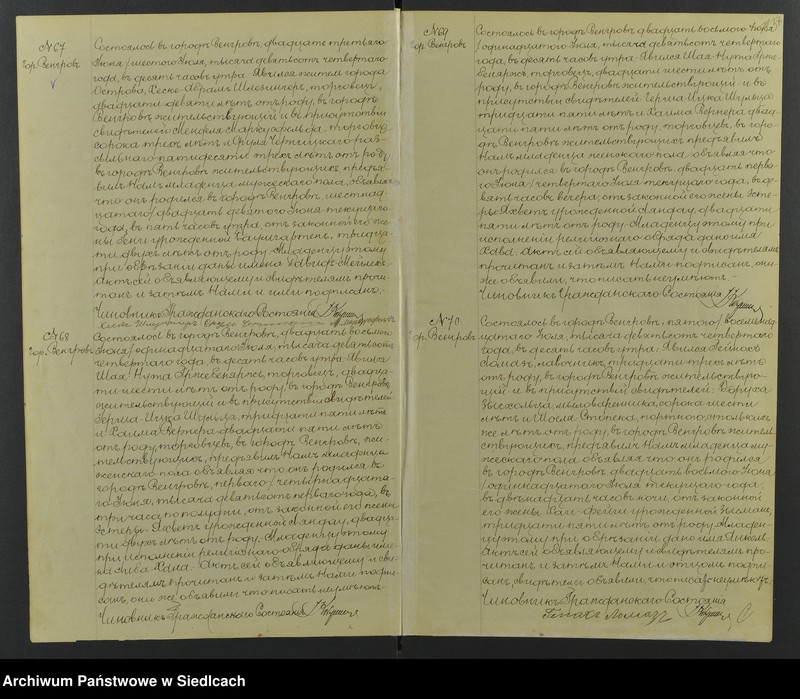 №67
Гор. Венгровъ
Состоялось въ городѣ Венгровѣ, двадцать третьяго
Іюня /шестого Іюля, тысяча девятьсотъ четвертаго
года, въ десять часовъ утра. Явился житель города
Острова, Хеске-Абрамъ Шлезингеръ, торговецъ,
двадцати девяти лѣтъ отъ роду, въ городѣ
Венгровѣ жительствующій и въ присутствіи
свидѣтелей Менделя Маркусфельда, торговца,
сорока трехъ лѣтъ и
пятидесяти трехъ лѣтъ отъ роду,
въ городѣ Венгровѣ жительствующихъ предъя-
вилъ Намъ младенца мужескаго пола, объявляя
что онъ родился въ городѣ Венгровѣ, шестнад-
цатаго/двадцать девятаго Іюня текущаго
года, въ пять часовъ утра, отъ законной его же-
ны урожденной тридца-
ти двухъ лѣтъ отъ роду. Младенцу этому
при обрѣзаніи даны имена Давидъ-Мейлехъ.
Актъ сей объявляющему и свидѣтелямъ прочи-
танъ и затѣмъ Нами и ими подписанъ.
Чиновникъ Гражданскаго Состоянія
№68
Гор. Венгровъ
Состоялось въ городѣ Венгровѣ, двадцать восьмого
Іюня/одинадцатаго Іюля, тысяча девятьсотъ
четвертаго года, въ десять часовъ утра. Явился
Шая-Нута торговецъ, двадца-
ти шести лѣтъ отъ роду, въ городѣ Венгровѣ
жительствующій и въ присутствіи свидѣтелей
Герша-Ицка Шульца, тридцати пяти лѣтъ
и Хаима Вернера двадцати пяти лѣтъ
отъ роду, торговцевъ, въ городѣ Венгровѣ, жи-
тельствующихъ, предъявилъ Намъ младенца
женскаго пола объявляя что онъ родился въ
городѣ Венгровѣ, перваго/четырнадцата-
го Іюня, тысяча девятьсотъ перваго года, въ
три часа по полудни, отъ законной его жены
Эстеры-Яхветъ урожденной Ландау, двадца-
ти двухъ лѣтъ отъ роду. Младенцу этому
при исполненіи религіознаго обряда даны име-
на Хана. Актъ сей объявляющему и сви-
дѣтелямъ прочитанъ и затѣмъ Нами подпи-
санъ, они же объявили что писать неумѣютъ.
Чиновникъ Гражданскаго Состоянія
№69
Гор. Венгровъ
Состоялось въ городѣ Венгровѣ двадцать восьмого Іюня
/одинадцатаго Іюля, тысяча девятьсотъ четвертаго
года, въ десять часовъ утра. Явился Шая-Нута
торговецъ, двадцати шести лѣтъ отъ
роду, въ городѣ Венгровѣ жительствующій и въ
присутствіи свидѣтелей Герша Ицка Шульца
тридцати пяти лѣтъ и Хаима Вернера двад-
цати пяти лѣтъ отъ роду, торговцевъ, въ горо-
дѣ Венгровѣ жительствующихъ предъявилъ
Намъ младенца женскаго пола, объявляя что
онъ родился въ городѣ Венгровѣ, двадцать перва-
го Іюня/четвертаго Іюля текущаго года, въ де-
вять часовъ вечера, отъ законной его жены Эсте-
ры-Яхветъ урожденной Ландау, двадцати
пяти лѣтъ отъ роду. Младенцу этому при
исполненіи религіознаго обряда дано имя
Хава. Актъ сей объявляющему и свидѣтелямъ
прочитанъ и затѣмъ Нами подписанъ, они-
же объявили, что писать неумѣютъ.
Чиновникъ Гражданскаго Состоянія
№70
Гор. Венгровъ
Состоялось въ городѣ Венгровѣ, пятого/восемнад-
цатаго Іюля, тысяча девятьсотъ четвертаго
года, въ десять часовъ утра. Явился
лавочникъ, тридцати трехъ лѣтъ
отъ роду, въ городѣ Венгровѣ жительствую-
щій и въ присутствіи свидѣтелей: Боруха
сорока шести
лѣтъ и портного столькихъ
же лѣтъ отъ роду, въ городѣ Венгровѣ житель-
ствующихъ, предъявилъ Намъ младенца му-
жескаго пола объявляя что онъ родился
въ городѣ Венгровѣ двадцать восьмого Іюня
/одинадцатаго Іюля текущаго года,
въ двѣнадцать часовъ ночи, отъ законной
его жены Хаи-Фейги урожденной Зысманъ,
тридцати пяти лѣтъ отъ роду. Младен-
цу этому при обрѣзаніи дано имя
Актъ сей объявляющему и свидѣтелямъ про-
читанъ и затѣмъ Нами и отцомъ подпи-
санъ, свидѣтели объявили, что писать неумѣютъ.
Чиновникъ Гражданскаго Состоянія
Archiwum Państwowe w Siedlcach